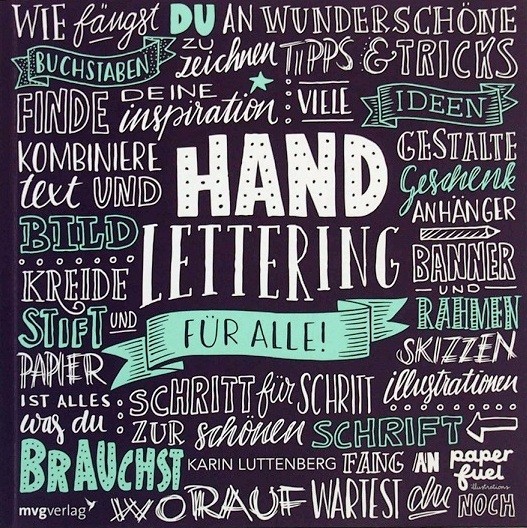 WIE fängst DU AN WUNDERSCHÖNE
BUCHSTABEN ZU zeichnen TIPPS & TRICKS
FINDE DEINE inspiration: VIELE IDEEN
KOMBINIERE
text UND
BILD
KREIDE
STIFT UND
PAPIER
IST ALLES
was du
BRAUCHST
HAND
LETTERING
FÜR ALLE!
GESTALTE
Geschenk
ANHÄNGER
BANNER
UND
RAHMEN
SKIZZEN
illustrationen
SCHRITT für SCHRITT
ZUR schönen SCHRIFT
KARIN LUTTENBERG FANG AN
WORAUF WARTEST du NOCH
paper
fuel
illustrations
mvgverlag